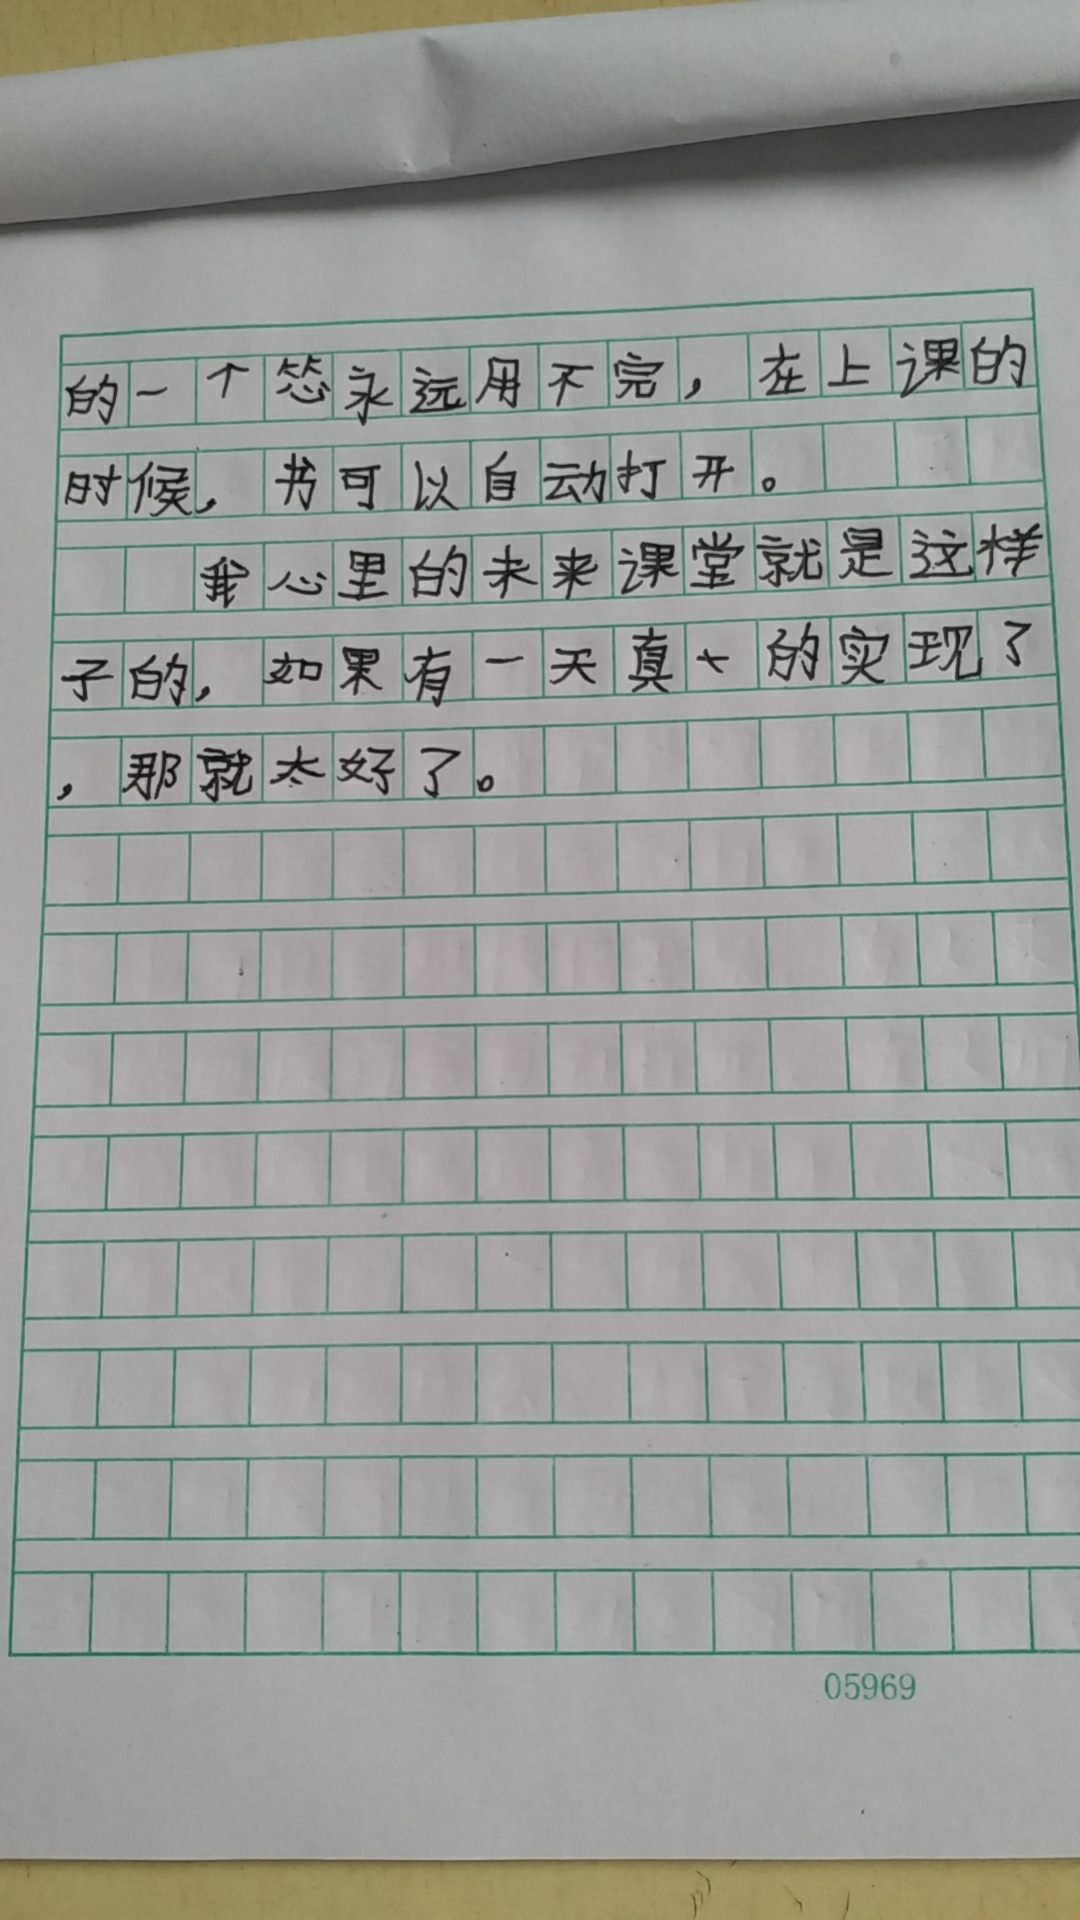 的一个永远用不完，在上课的
时候，书可以自动打开。
我心里的未来课堂就是这样
子的，如果有一天真的实现了
，那就太好了。
05969